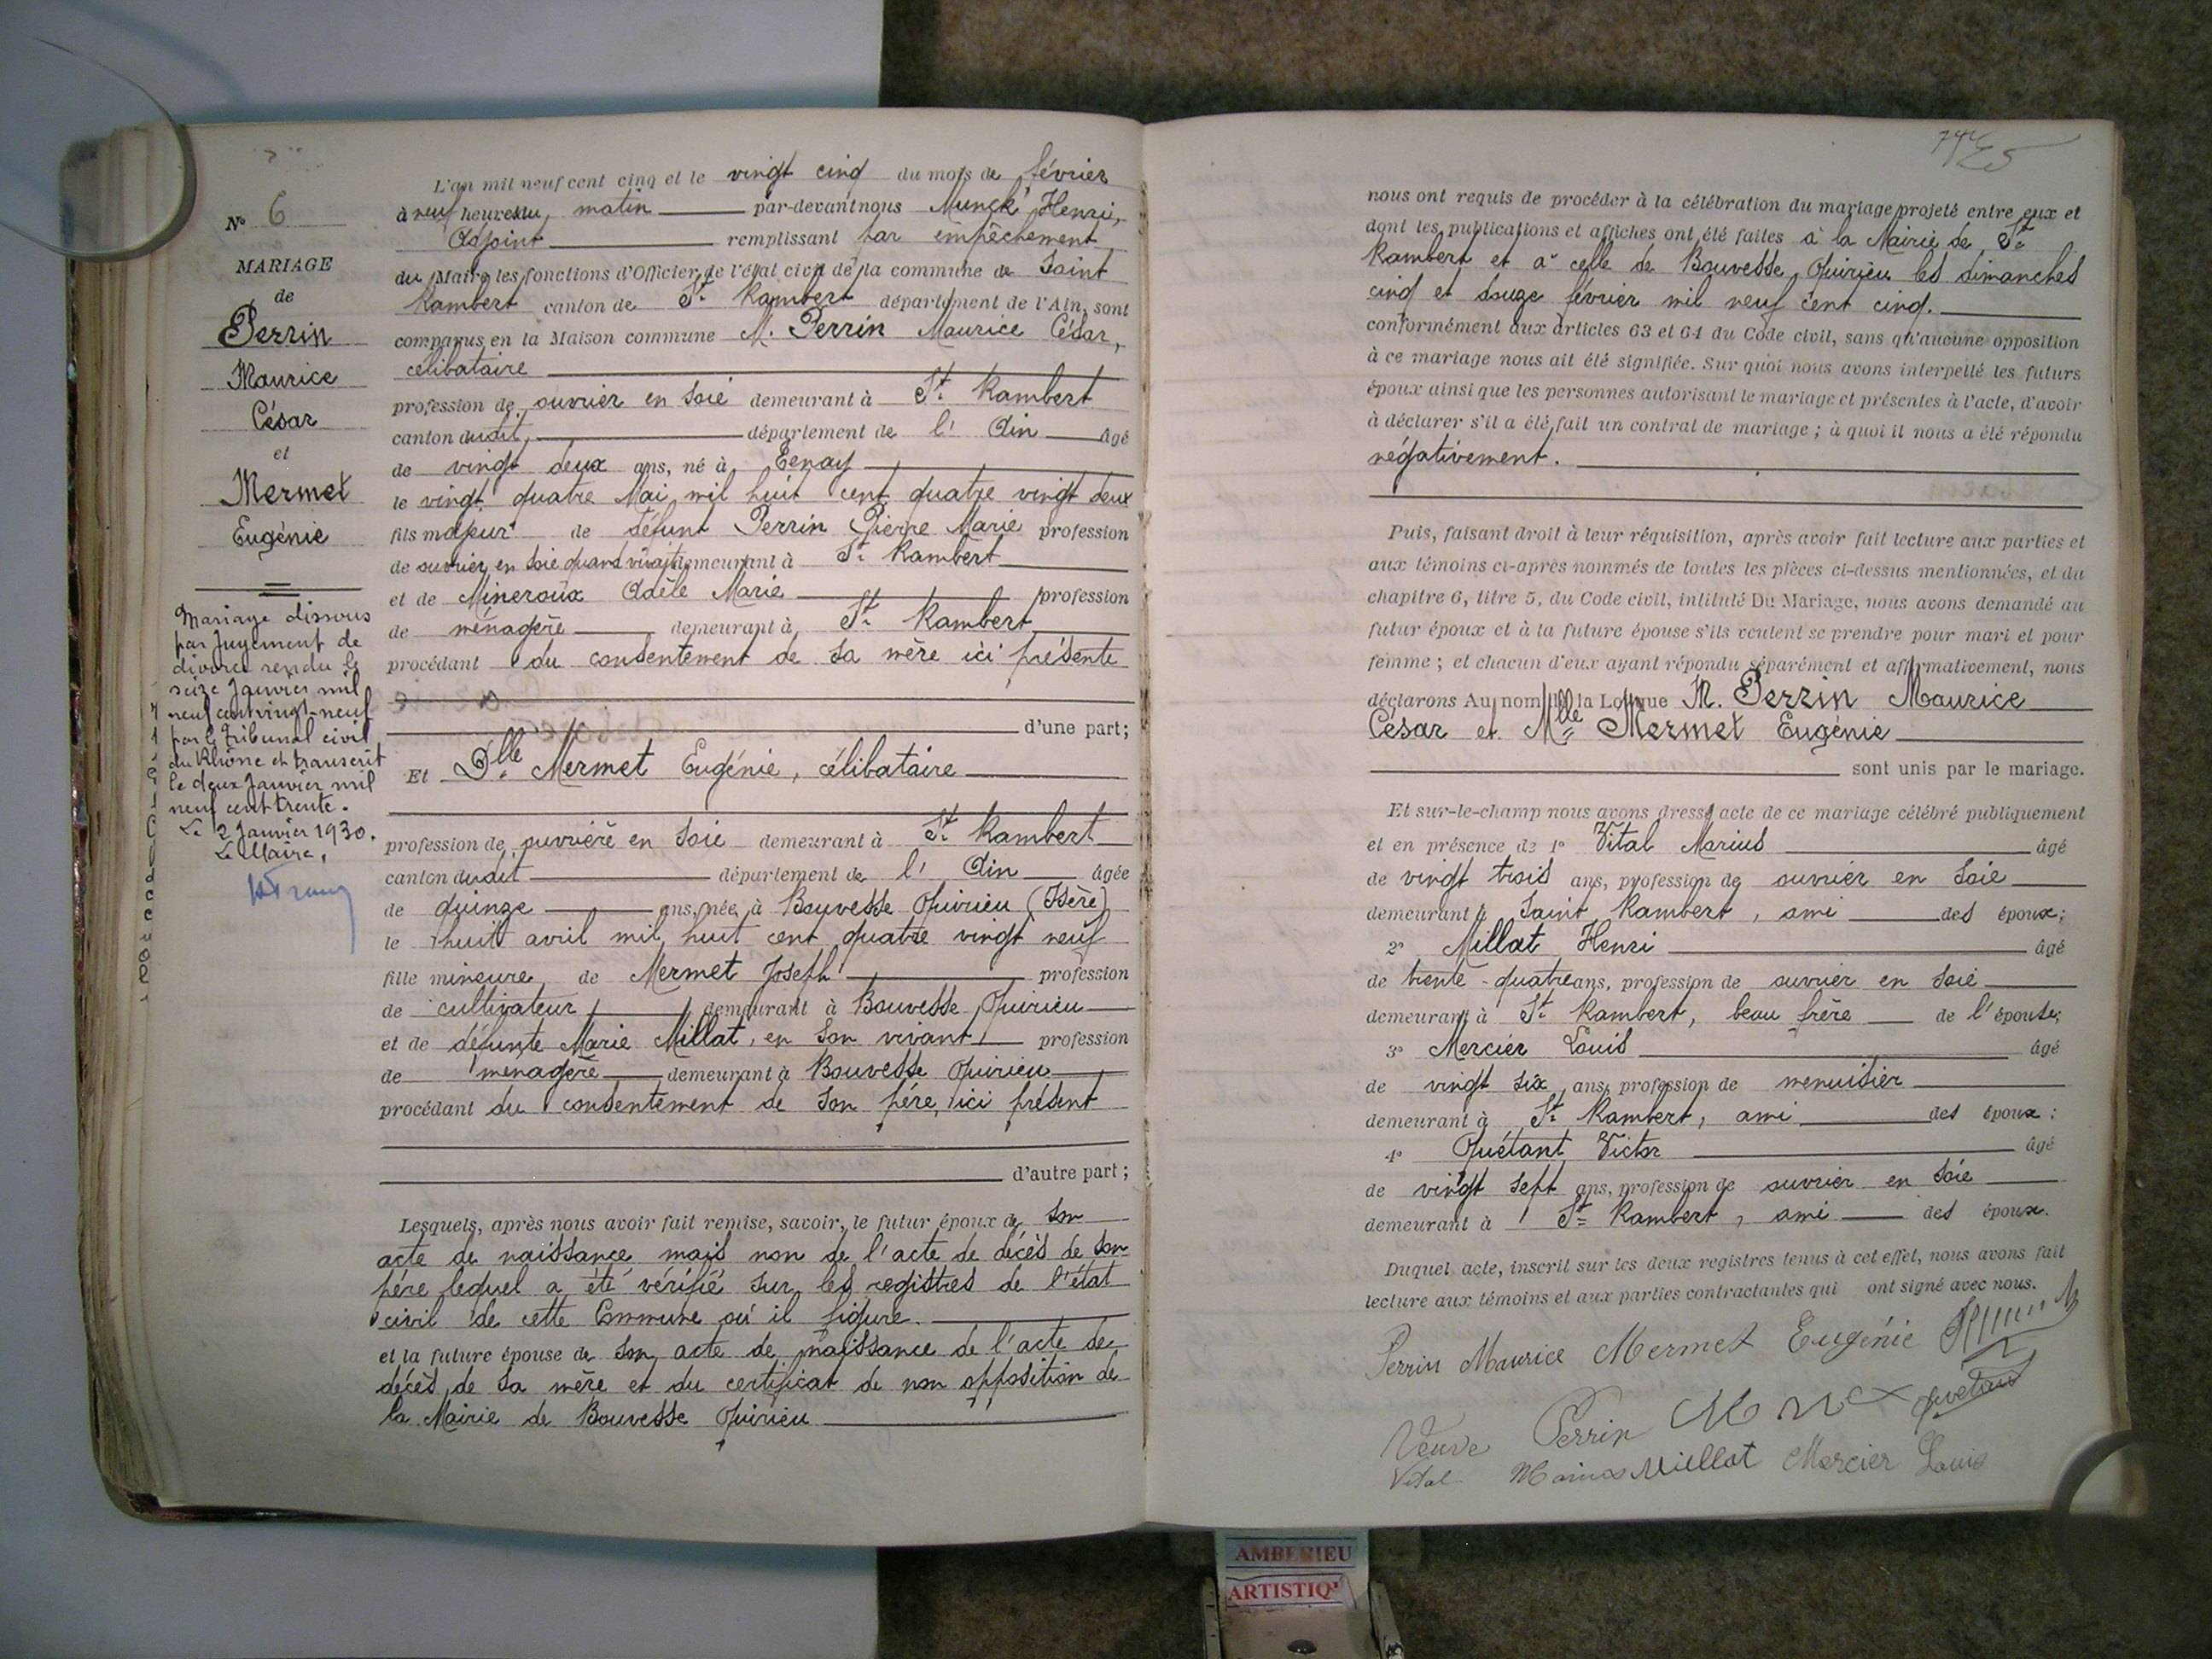 N° 6
MARIAGE
de
Perrin
Maurice
César
et
Mermet
Eugénie
Mariage dissous
par jugement de
divorce rendu le
seize Janvier mil
neuf cent vingt-neuf
par le Tribunal civil
du Rhône et transcrit
le deux Janvier mil
neuf cent trente.
Le 2 Janvier 1930.
Le Maire,
L'an mil neuf cent cinq et le vingt cinq du mois de février
à neuf heures du matin par-devant nous Munck Henri,
Adjoint remplissant par empêchement
du Maire les fonctions d'Officier de l'état civil de la commune de Saint
Rambert canton de St. Rambert département de l'Ain, sont
comparus en la Maison commune M. Perrin Maurice César,
célibataire
profession de ouvrier en soie demeurant à St. Rambert
canton dudit, département de l'Ain âgé
de vingt deux ans, né à Tenay
le vingt quatre Mai mil huit cent quatre vingt deux
fils majeur de défunt Perrin Pierre Marie profession
de ouvrier en soie quand vivait demeurant à St. Rambert
et de Mineroux Adèle Marie profession
de ménagère demeurant à St. Rambert
procédant du consentement de sa mère ici présente
d'une part;
Et Dlle Mermet Eugénie, célibataire
profession de ouvrière en soie demeurant à St. Rambert
canton dudit département de l'Ain âgée
de quinze ans, née à Bouvesse Quirieu (Isère)
le huit avril mil huit cent quatre vingt neuf
fille mineure de Mermet Joseph profession
de cultivateur demeurant à Bouvesse Quirieu
et de défunte Marie Millat, en son vivant profession
de ménagère demeurant à Bouvesse Quirieu
procédant du consentement de son père, ici présent
d'autre part;
Lesquels, après nous avoir fait remise, savoir, le futur époux de son
acte de naissance mais non de l'acte de décès de son
père lequel a été vérifié sur les registres de l'état
civil de cette Commune où il figure.
et la future épouse de son acte de naissance de l'acte de
décès de sa mère et du certificat de non opposition de
la Mairie de Bouvesse Quirieu
nous ont requis de procéder à la célébration du mariage projeté entre eux et
dont les publications et affiches ont été faites à la Mairie de St.
Rambert et à celle de Bouvesse Quirieu les dimanches
cinq et douze février mil neuf cent cinq.
conformément aux articles 63 et 64 du Code civil, sans qu'aucune opposition
à ce mariage nous ait été signifiée. Sur quoi nous avons interpellé les futurs
époux ainsi que les personnes autorisant le mariage et présentes à l'acte, d'avoir
à déclarer s'il a été fait un contrat de mariage ; à quoi il nous a été répondu
négativement.
Puis, faisant droit à leur réquisition, après avoir fait lecture aux parties et
aux témoins ci-après nommés de toutes les pièces ci-dessus mentionnées, et du
chapitre 6, titre 5, du Code civil, intitulé Du Mariage, nous avons demandé au
futur époux et à la future épouse s'ils veulent se prendre pour mari et pour
femme ; et chacun d'eux ayant répondu séparément et affirmativement, nous
déclarons Au nom de la Loi que M. Perrin Maurice
César et Mlle Mermet Eugénie
sont unis par le mariage.
Et sur-le-champ nous avons dressé acte de ce mariage célébré publiquement
et en présence de 1° Vital Marius âgé
de vingt trois ans, profession de ouvrier en soie
demeurant à Saint Rambert, ami des époux;
2° Millat Henri âgé
de trente-quatre ans, profession de ouvrier en soie
demeurant à St. Rambert, beau frère de l'épouse;
3° Mercier Louis âgé
de vingt six ans, profession de menuisier
demeurant à St. Rambert, ami des époux;
4° Quétant Victor âgé
de vingt sept ans, profession de ouvrier en soie
demeurant à St. Rambert, ami des époux.
Duquel acte, inscrit sur les deux registres tenus à cet effet, nous avons fait
lecture aux témoins et aux parties contractantes qui ont signé avec nous.
Perrin Maurice Mermet Eugénie
Veuve Perrin Quetant
Vital Millat Mercier Louis
AMBERIEU
ARTISTIQ'